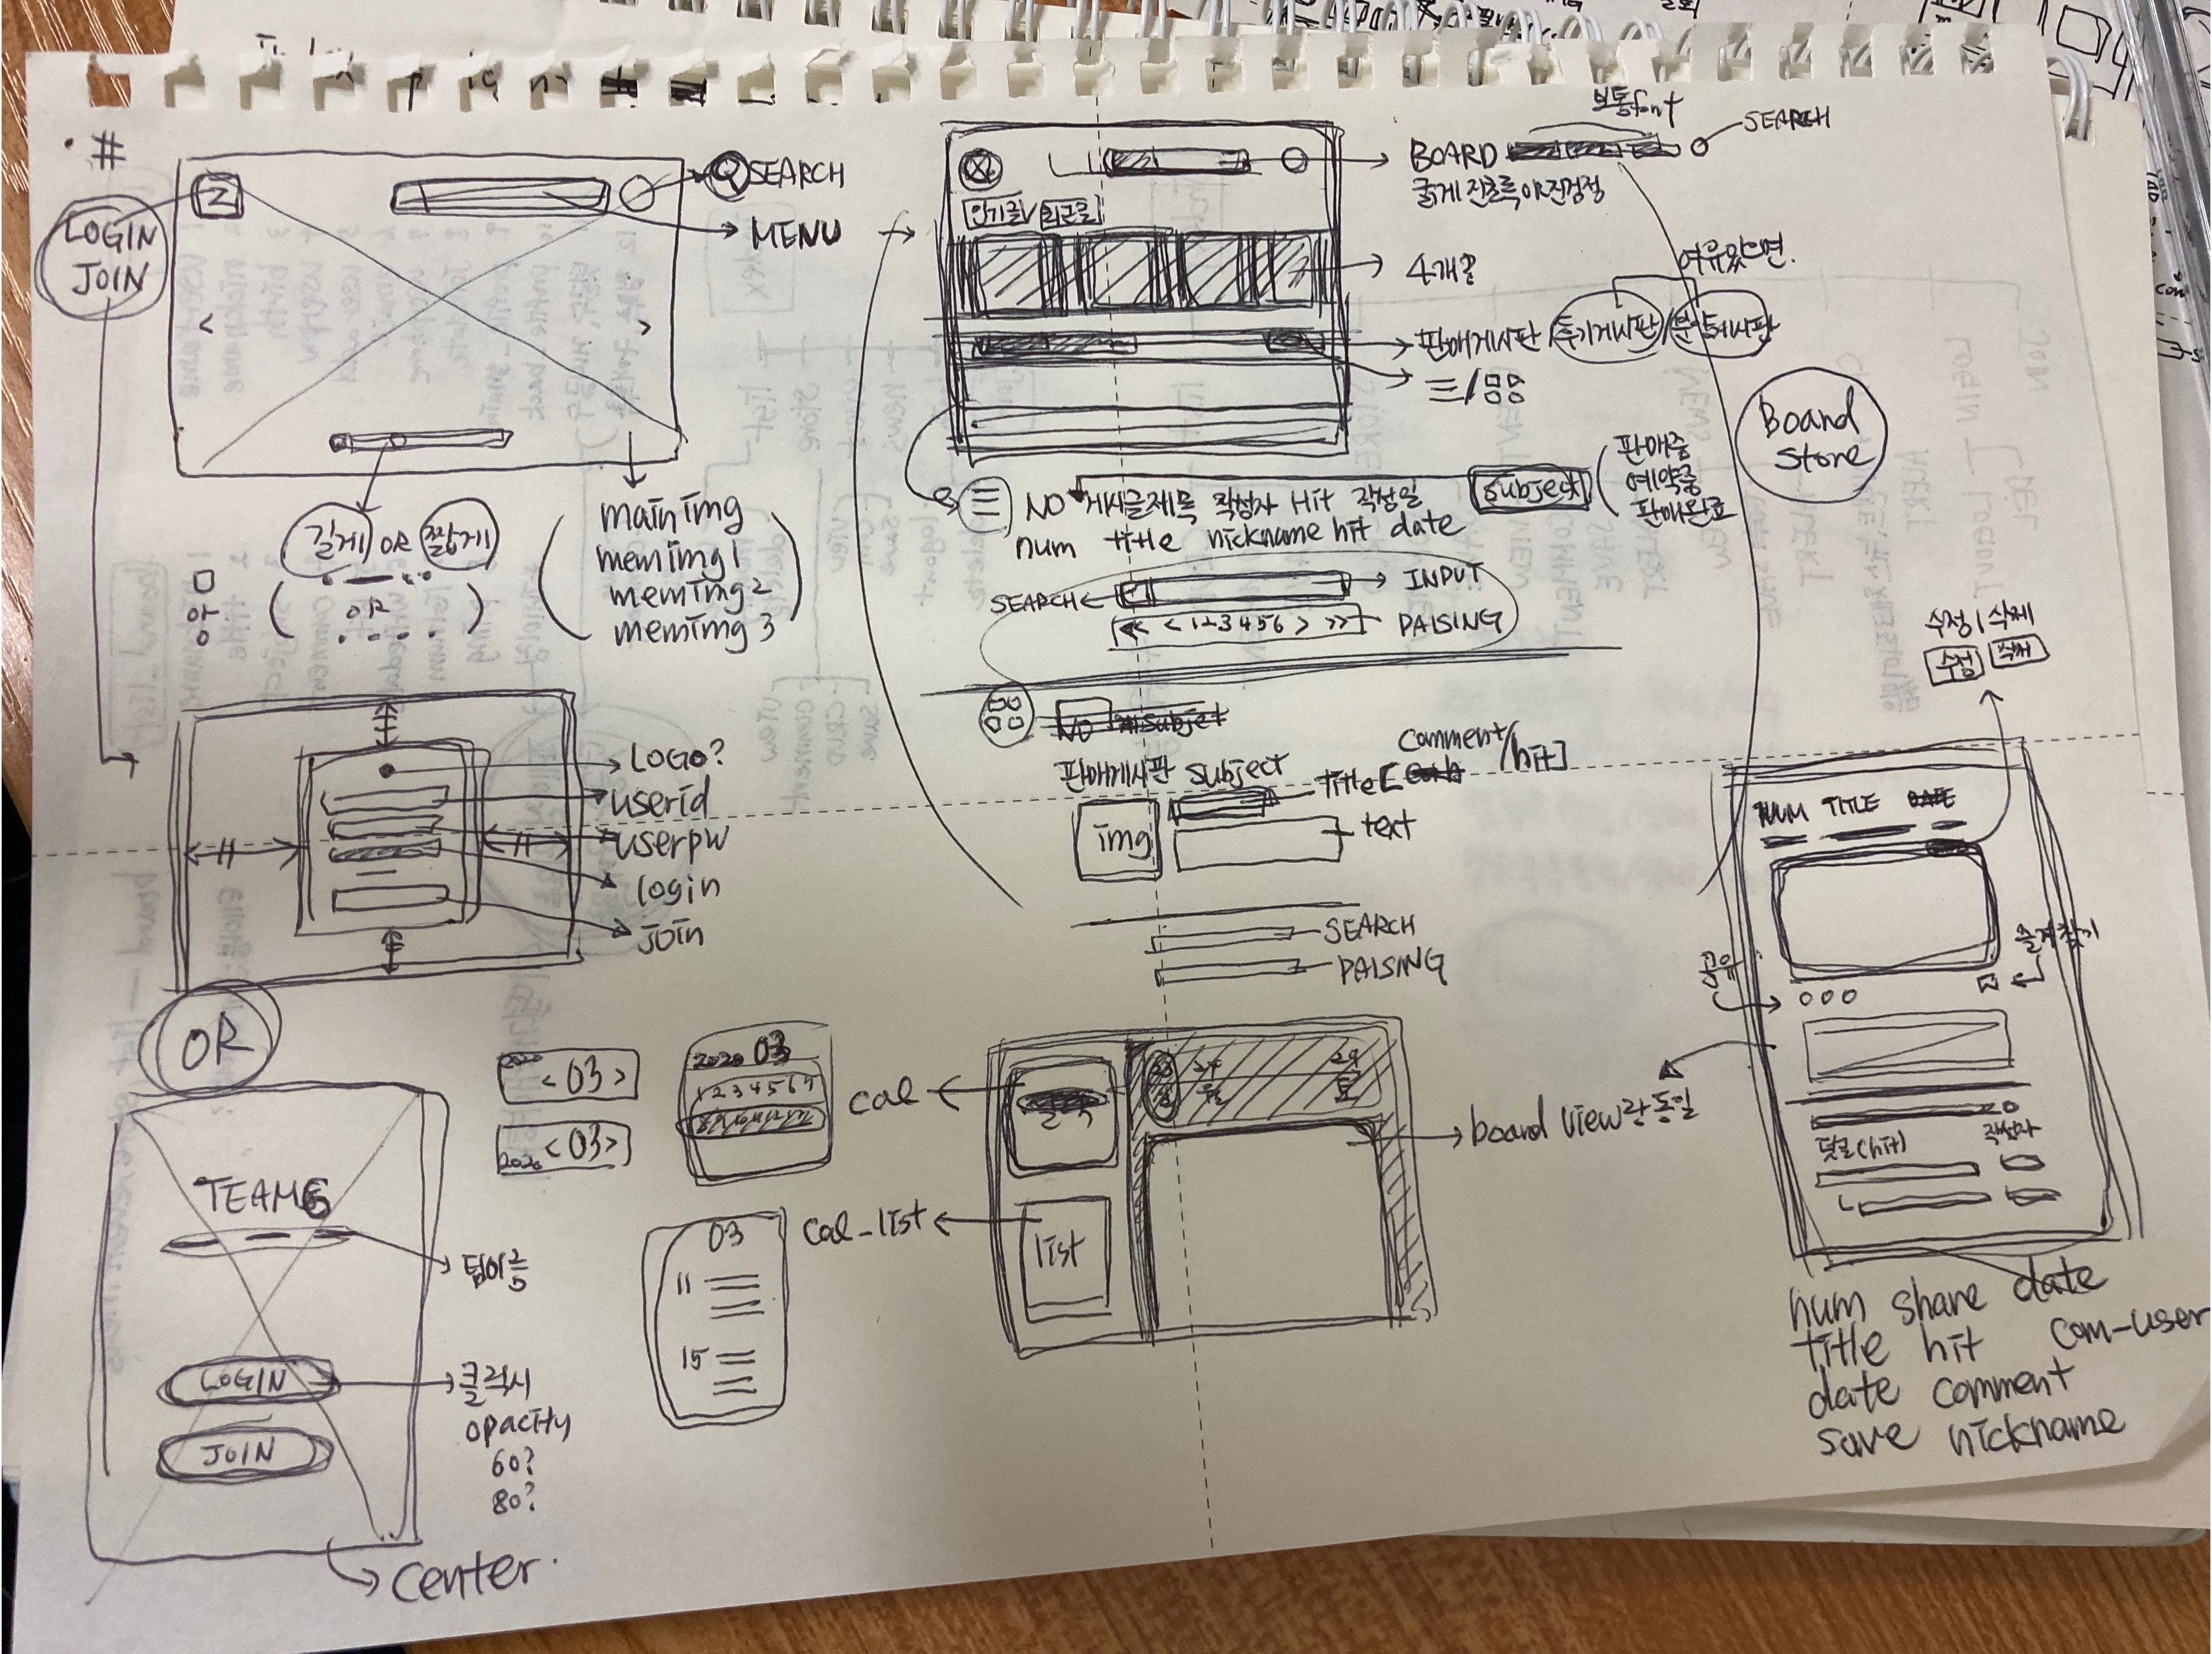 #
LOGIN
JOIN
SEARCH
MENU
길게 OR 짧게
OR
main img
memimg 1
memimg 2
memimg 3
LOGO?
userid
userpw
login
join
OR
TEAM
LOGIN
JOIN
클릭시
opacity
60?
80?
center.
인기글 최근글
보통font
BOARD
SEARCH
4개씩
여유있으면.
판매게시판 / 후기게시판 /
三/
Board
Store
NO 게시글제목 작성자 Hit 작성일
num title nickname hit date
subject
판매중
예약중
판매완료
SEARCH
INPUT
<< < 1 2 3 4 5 6 > >>
PAISING
NO subject
판매게시판 subject
title [
comment/hit]
img
text
SEARCH
PAISING
2020 < 03 >
2020 < 03 >
2020 03
1 2 3 4 5 6 7
cal
03
11
15
cal-list
list
board view랑 동일
수정 / 삭제
수정 삭제
NUM TITLE DATE
공유
즐겨찾기
댓글(hit)
작성자
num share date
title hit com-user
date comment
save nickname